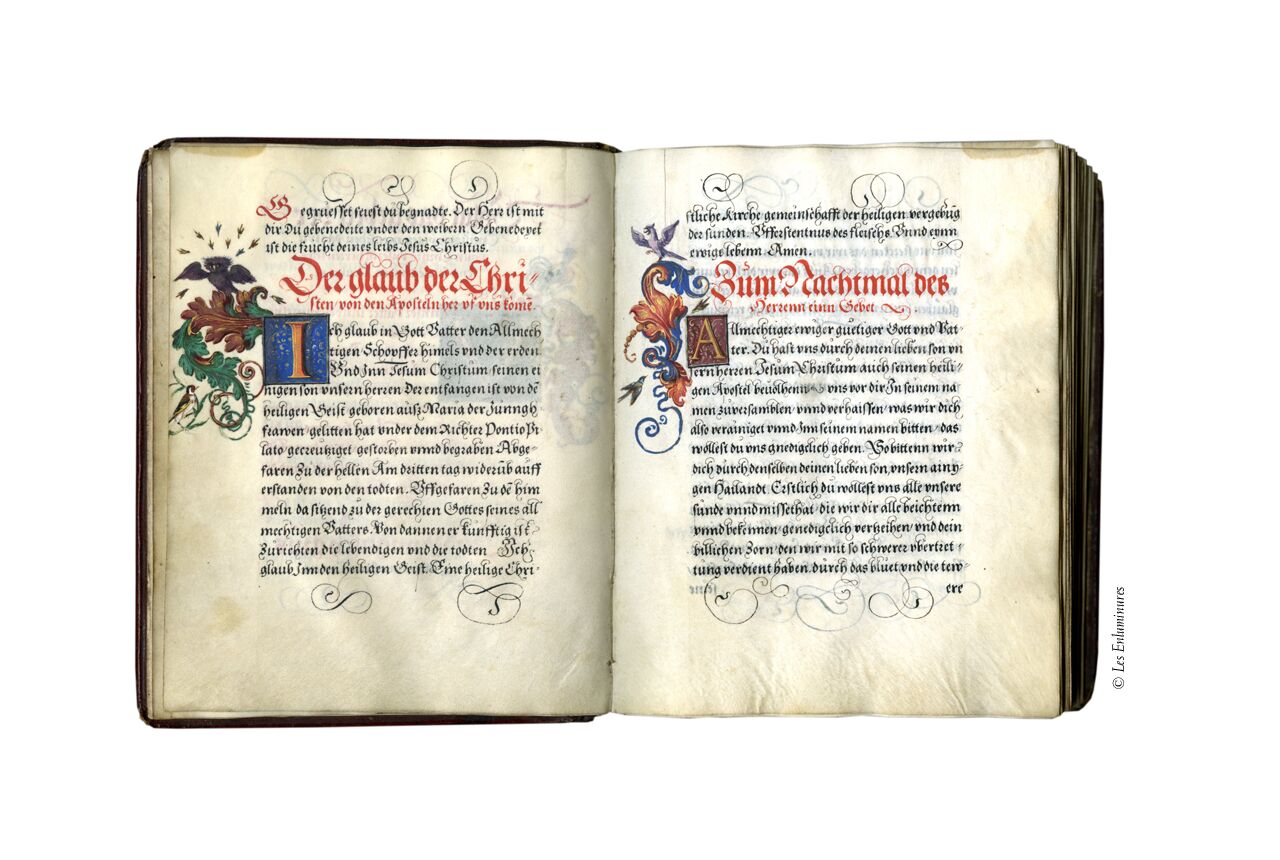 Gegruesset seiest du begnadte. Der Herr ist mit
dir Du gebenedeite vnder den weibern Gebenedeyet
ist die frücht deines leibs Jesus Christus.
Der glaub der Chri-
sten von den Aposteln her vf vns kōmē.
Ich glaub in Gott Vatter den Allmech
tigen Schopffer himels vnd der erden
Vnd Inn Jesum Christum seinen ei
nigen son vnsern herren Der entfangen ist von dē
heiligen Geist geboren auß Maria der Junngh
frawen. gelitten hat vnder dem Richter Pontio Pi
lato gecreutziget gestorben vnnd begraben Abge-
faren Zu der hellen Am dritten tag widerūb auff
erstanden von den todten. Vffgefaren Zu dē him
meln da sitzend zu der gerechten Gottes seines all
mechtigen Vatters. Von dannen er künfftig ist
Zurichten die lebendigen vnd die todten Ich
glaub Inn den heiligen Geist. Eine heilige Chri-
stliche Kirche gemeinschafft der heiligen vergebūg
der sunden. Vfferstentnus des fleischs Vnnd eynn
ewigs lebenn. Amen.
Zum Nachtmal des
Herrenn einn Gebet
Allmechtiger ewiger guetiger Gott vnd Vat-
ter. Du hast vns durch deinen lieben son vn
sern herren Jesum Christum auch seinen heili-
gen Apostel beuolhenn vns vor dir Zu seinem na
men zuuersamblen vnnd verhaissen was wir dich
also verainiget vnnd Inn seinem namen bitten, das
wollest du vns gnediglich geben. So bitten wir
dich durch denselben deinen lieben son, vnsern ainy-
gen Hailandt Erstlich du wöllest vns alle vnsere
sunde vnnd missethat die wir dir alle beichtenn
vnnd bekennen genediglich verzeihen vnd dein
billichen Zorn den wir mit so schwerer vbertret-
tung verdient haben, durch das bluet vnd die tew-
ere
© Les Enluminures